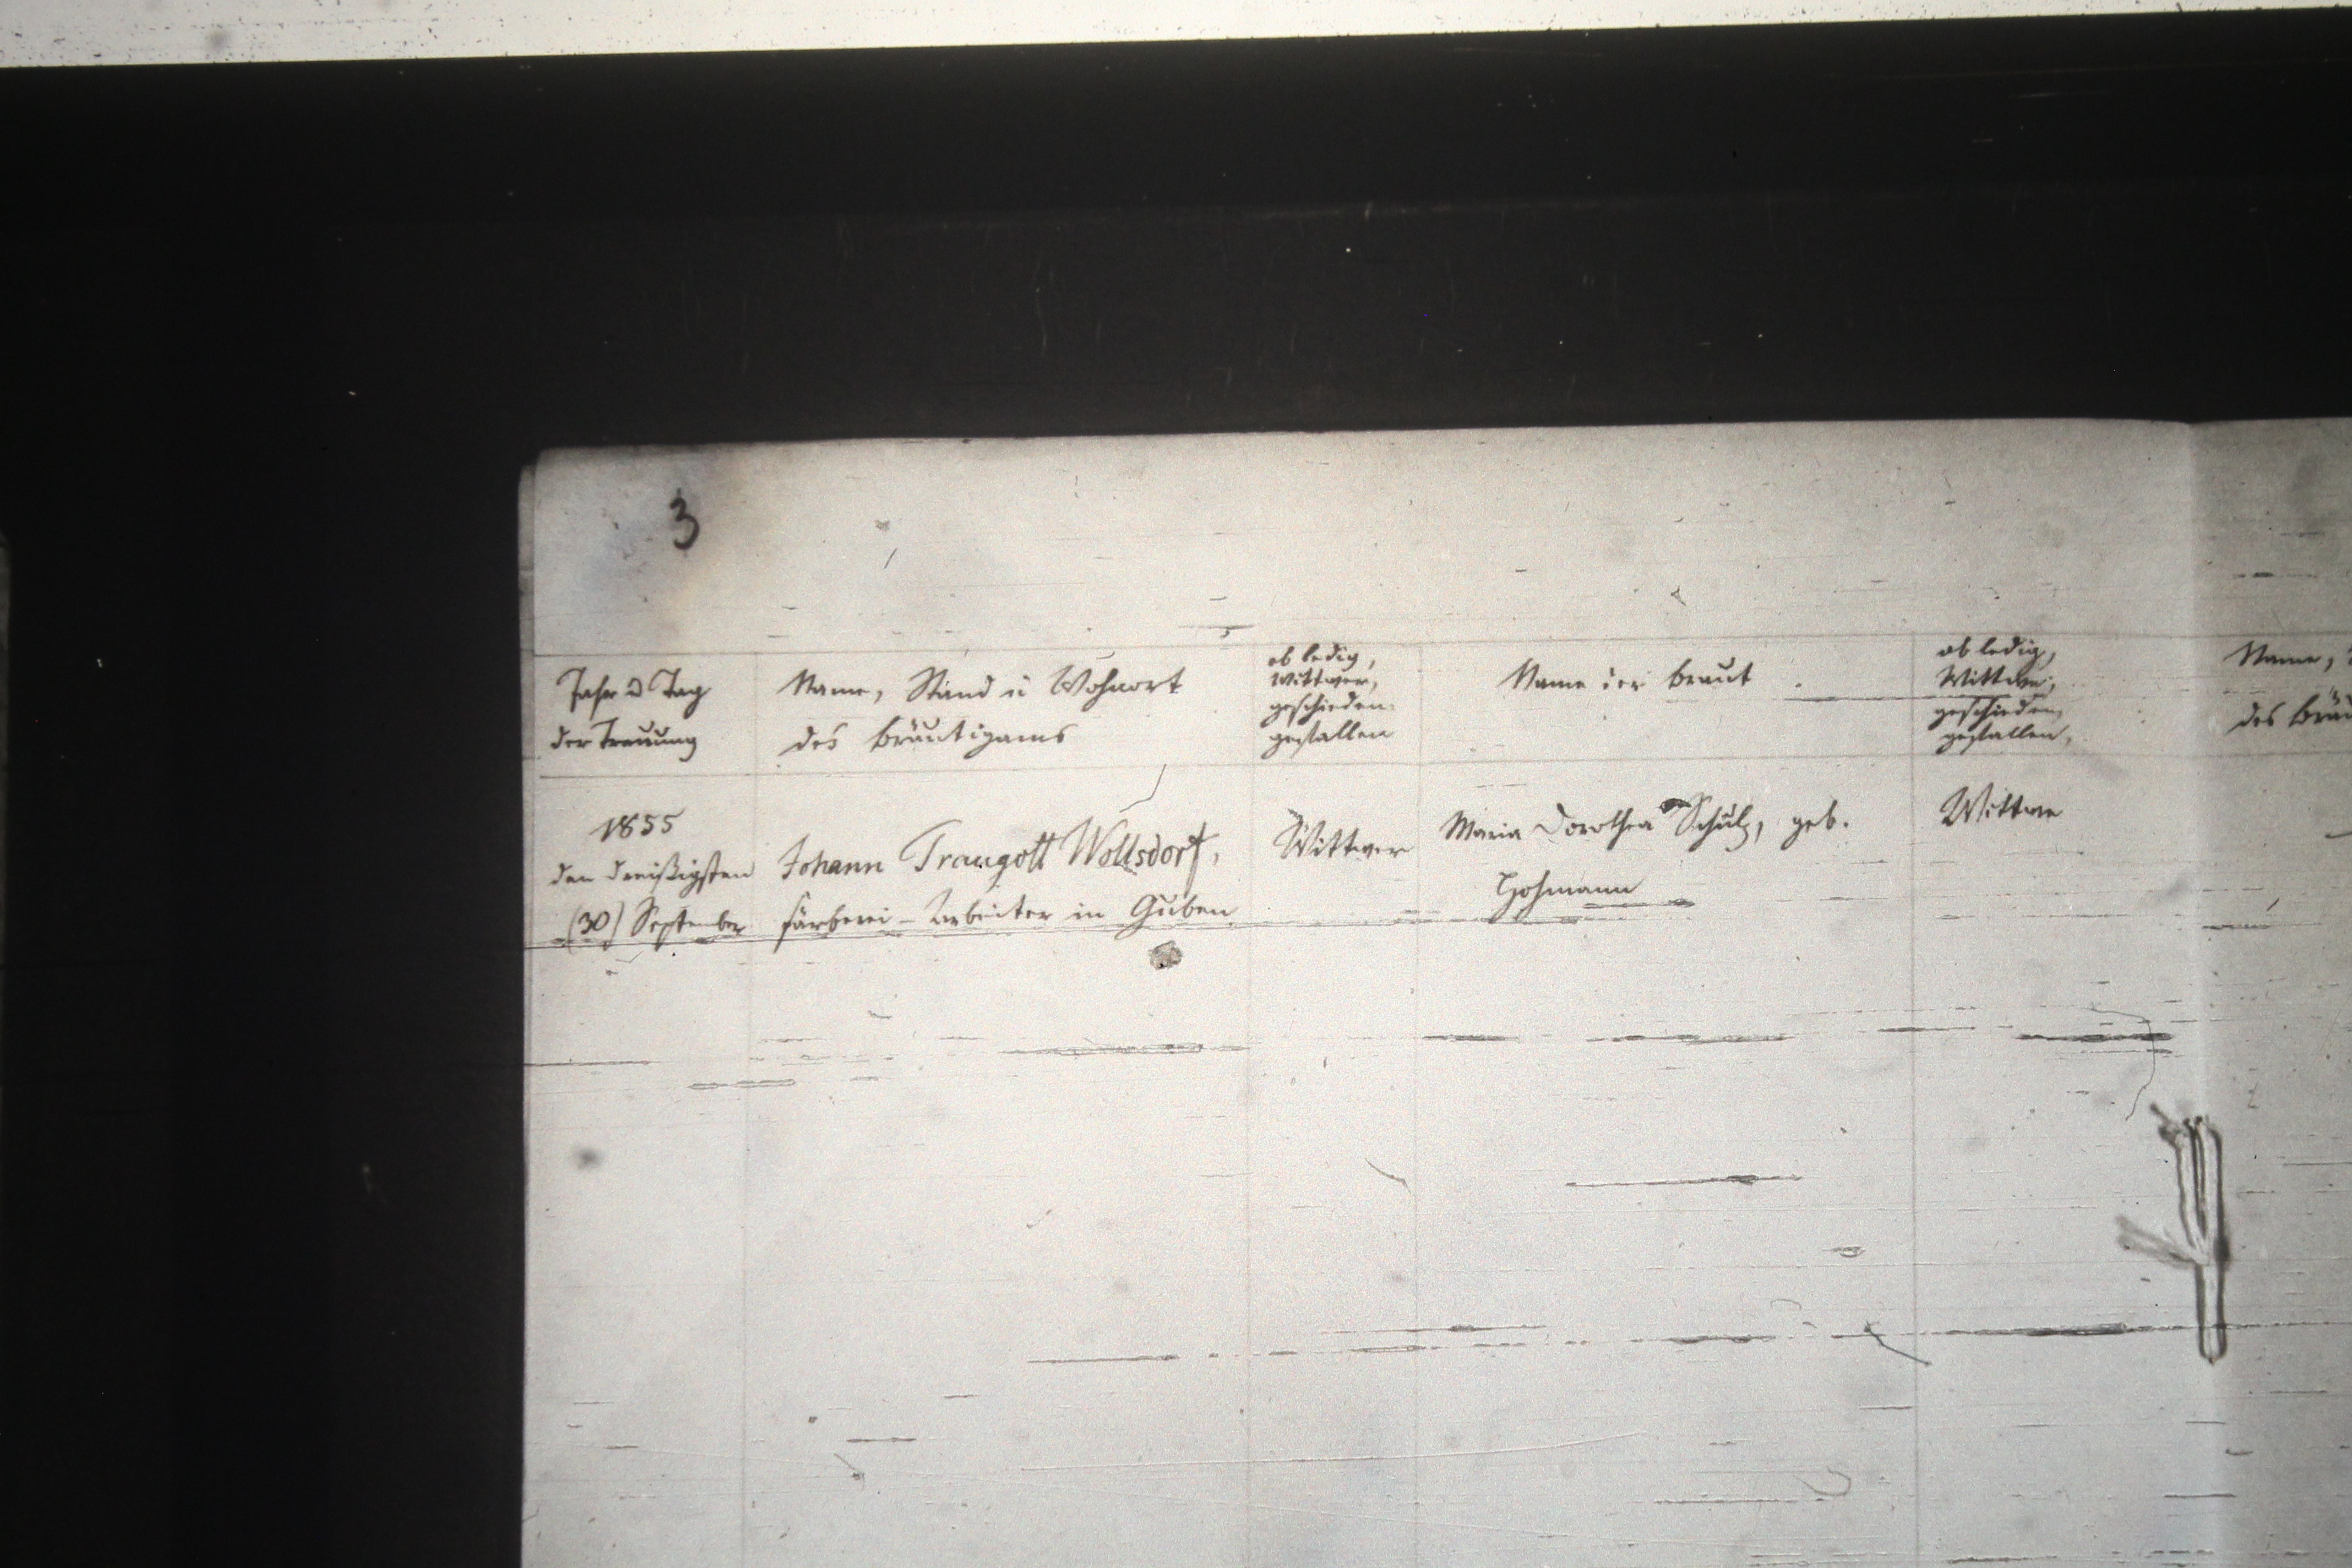 3
Jahr u Tag
der Trauung
Name, Stand u Wohnort
des Bräutigams
ob ledig,
Wittwer,
geschieden
gefallen
Name der Braut.
ob ledig,
Wittwe,
geschieden,
gefallen,
Name,
des Bräu
1855
den dreißigsten
(30) September
Johann Traugott Wollsdorf,
Färberei-Arbeiter in Guben
Wittwer
Maria Dorothea Schulz, geb.
Hohmann
Wittwe